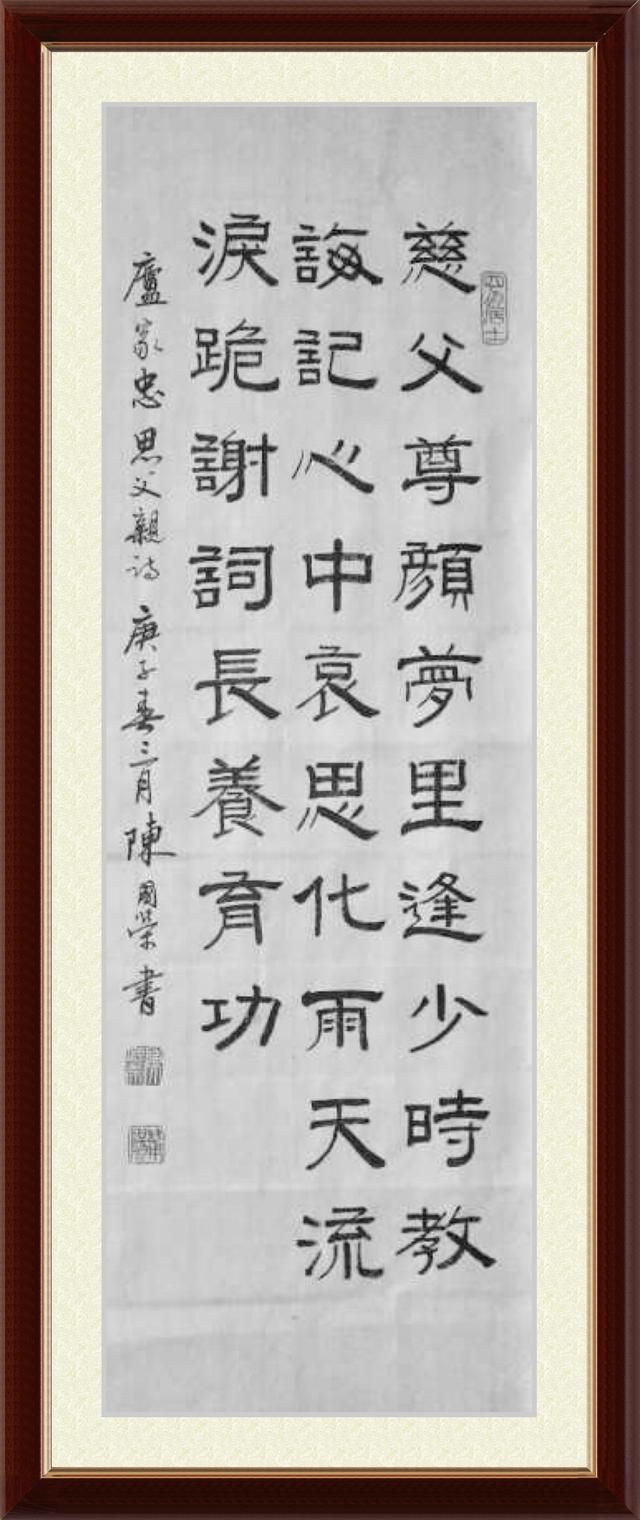 慈父尊顏夢里逢少時教
誨記心中哀思化雨天流
淚跪謝詞長養育功
盧家忠思父親詩庚子春三月陳國榮書